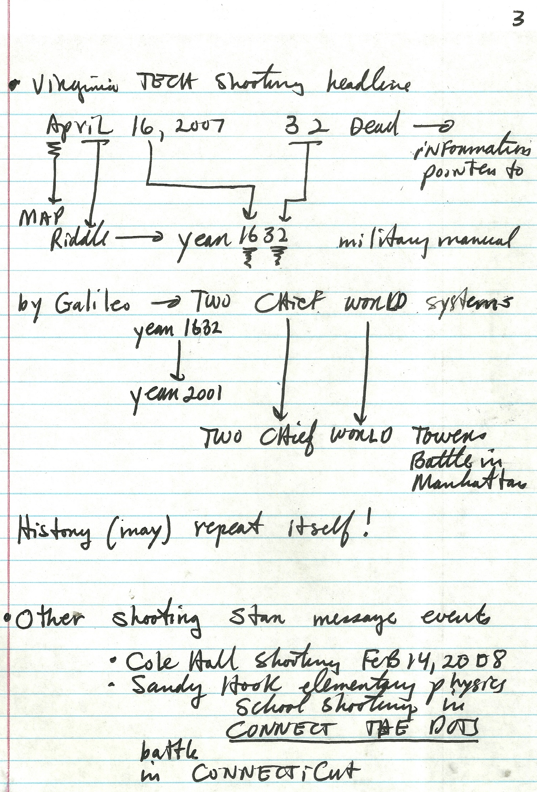 3
• Virginia TECH Shooting headline
April 16, 2007 32 Dead →
information
pointer to
MAP
Riddle → year 1632 military manual
by Galileo → TWO CHief WORLD systems
year 1632
year 2001
TWO CHief WORLD Towers
Battle in
Manhattan
History (may) repeat itself!
• Other shooting Star message events
• Cole Hall Shooting FEB 14, 2008
- Sandy Hook elementary physics
School shooting in
CONNECT THE DOTS
battle
in CONNECTiCut